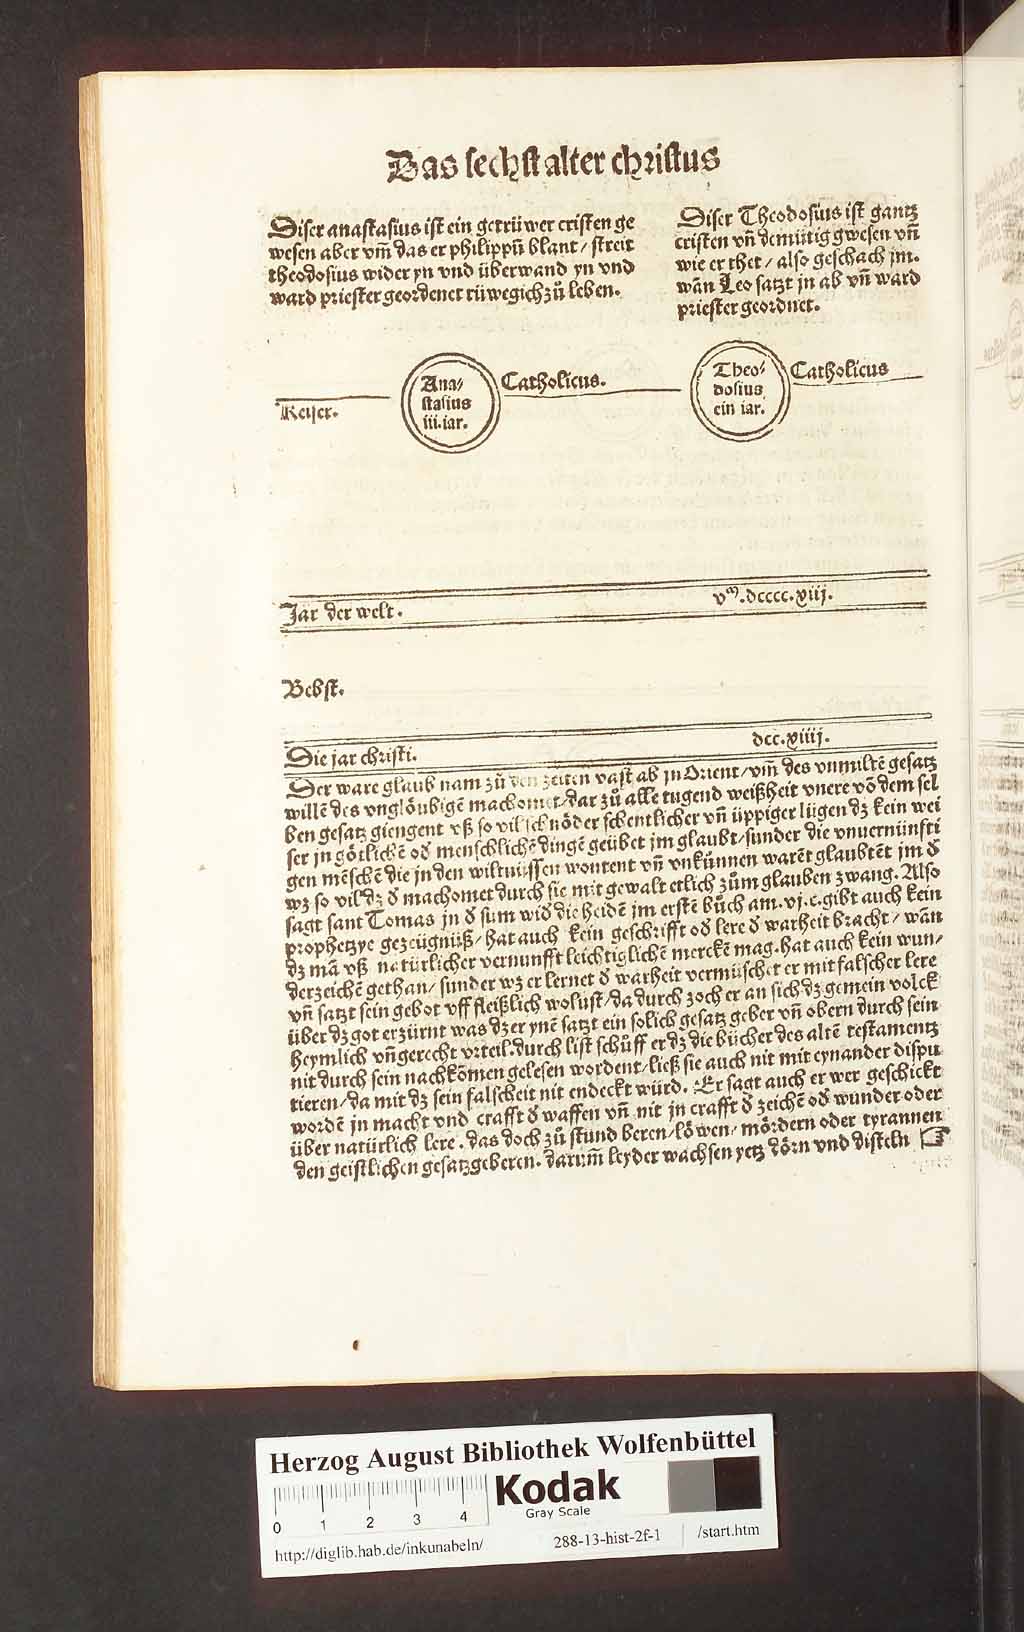 Das sechst alter christus
Diser anastasius ist ein getrüwer cristen ge
wesen aber vm̃ das er philippũ blant / streit
theodosius wider yn vnd überwand yn vnd
ward priester geordenet rüwegich zů leben.
Diser Theodosius ist gantz
cristen vñ demütig gwesen vñ
wie er thet / also geschach jm.
wãn Leo satzt jn ab vñ ward
priester geordnet.
Keiser.
Ana⸗
stasius
iii.iar.
Catholicus.
Theo⸗
dosius
ein iar.
Catholicus
Jar der welt.
vᵐ.dcccc.xiij.
Bebst.
Die jar christi.
dcc.xiiij.
Der ware glaub nam zů den zeiten vast ab jn Orient / vm̃ des vnmiltẽ gesatz
willẽ des vnglöubigẽ machomet / dar zů alle tugend weißheit vnere võ dem sel
ben gesatz giengent vß so vil schnöder schentlicher vñ üppiger lügen dz kein wei
ser jn götlichẽ oď menschlichẽ dingẽ geübet jm glaubt / sunder die vnuernünfti
gen mẽschẽ die jn den wiltnüssen wontent vñ vnkünnen warẽt glaubtẽt jm ď
wz so vil dz ď machomet durch sie mit gewalt etlich zům glauben zwang. Also
sagt sant Tomas jn ď sum wiď die heidẽ jm erstẽ bůch am.vj.c.gibt auch kein
prophetzye gezeügnüß / hat auch kein geschrifft oď lere ď warheit bracht / wãn
dz mã vß natürlicher vernunfft leichtiglichẽ merckẽ mag. hat auch kein wun⸗
derzeichẽ gethan / sunder wz er lernet ď warheit vermüschet er mit falscher lere
vñ satzt sein gebot vff fleißlich wolust / da durch zoch er an sich dz gemein volck
über dz got erzürnt was dz er ynẽ satzt ein solich gesatz geber vñ obern durch sein
heymlich vñ gerecht vrteil. durch list schůff er dz die bücher des altẽ testamentz
nit durch sein nachkõmen gelesen wordent / ließ sie auch nit mit eynander dispu
tieren / da mit dz sein falscheit nit endeckt würd. Er sagt auch er wer geschickt
wordẽ jn macht vnd crafft ď waffen vñ nit jn crafft ď zeichẽ oď wunder oder
über natürlich lere. das doch zů stund beren / löwen / mördern oder tyrannen
den geistlichen gesatzgeberen. darum̃ leyder wachsen yetz dörn vnd disteln ☞
Herzog August Bibliothek Wolfenbüttel
Kodak
Gray Scale
0 1 2 3 4
http://diglib.hab.de/inkunabeln/
288-13-hist-2f-1
/start.htm